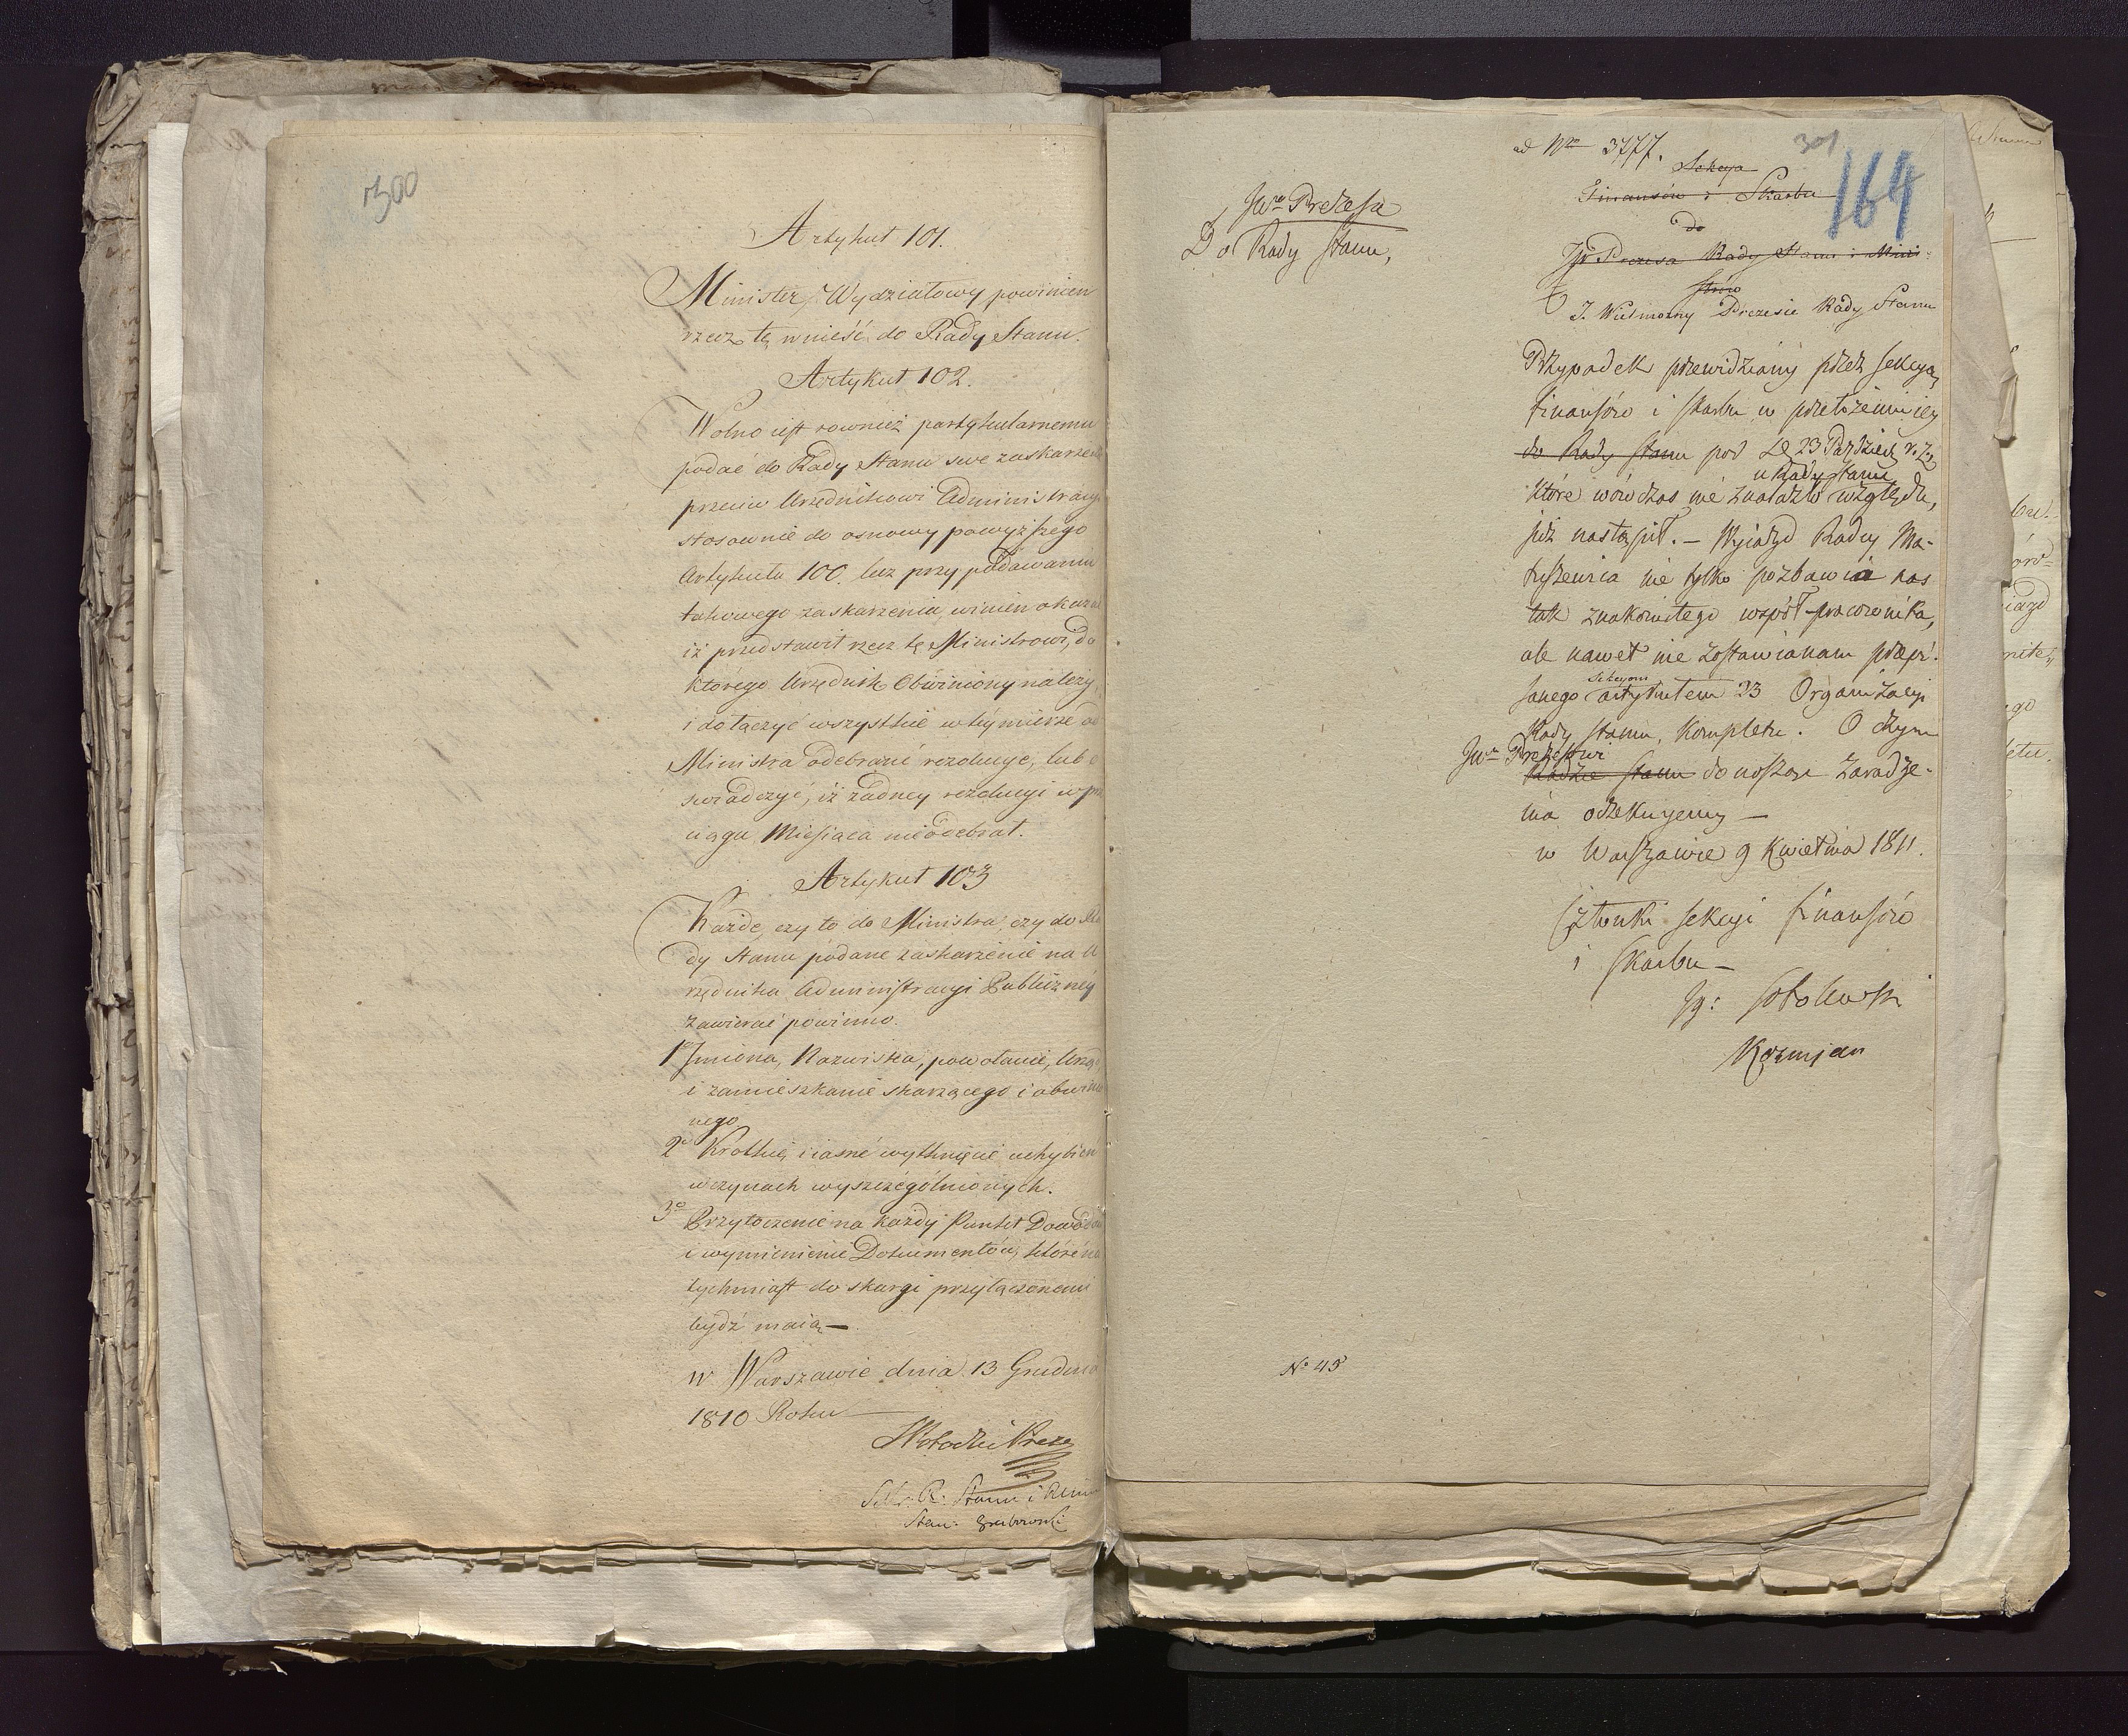 300
Artykuł 101.
Minister Wydziałowy powinien
rzecz tę wnieść do Rady Stanu.
Artykuł 102.
Wolno iest rownież partykularnemu
podać do Rady Stanu swe zaskarżenie
przeciw Urzędnikowi Administracyi
stosownie do osnowy powyższego
Artykułu 100. lecz przy podawaniu
takowego zaskarżenia, winien okazać
iż przedstawił rzecz tę Ministrowi, do
którego Urzędnik Obwiniony należy,
i dołączyć wszystkie w tey mierze od
Ministra odebrane rezolucye, lub o
swiadczyć, iż żadney rezolucyi w prze
ciągu Miesiąca nieodebrał.
Artykuł 103
Każde, czy to do Ministra, czy do Ra
dy Stanu podane zaskarżenie na U
rzędnika Administracyi Publiczney
zawierać powinno.
1o Imiona, Nazwiska, powołanie, Urząd
i zamieszkanie skarżącego i obwinio
nego
2o Krotkie, i iasne wytknięcie uchybień
w czynach wyszczególnionych.
3o Przytoczenie na każdy Punkt Dowodów
i wymienienie Dokumentów, które na
tychmiast do skargi przyłączonemi
bydź maią —
w Warszawie dnia 13 Grudnia
1810 Roku
Sekr: R: Stanu i
Stan: Grabowski
ad Nro 3777.
301
164
Sekcya
Finansów i Skarbu
do
JW Prezesa Rady Stanu i Mini-
strów
JWo Prezesa
Do Rady Stanu,
J. Wielmożny Prezesie Rady Stanu
Przypadek przewidziany przez Sekcyą
finansów i skarbu w przełożeniu iey
do Rady Stanu pod D. 23 Paździer. r. z.
u Rady Stanu
które wówczas nie znalazło względu,
już nastąpił. — Wyiazd Radcy Ma-
tuszewica nie tylko pozbawia nas
tak znakomitego współ-pracownika,
ale nawet nie zostawia nam przepi-
Sekcyom
sanego artykułem 23 Organizacyi
Rady Stanu, Kompletu. O czym
JWu Prezesowi
Radzie Stanu donosząc zaradze-
nia oczekujemy —
w Warszawie 9 Kwietnia 1811.
Członki Sekcyi finansów
i Skarbu —
Sobolewski
Kozmian
No 45